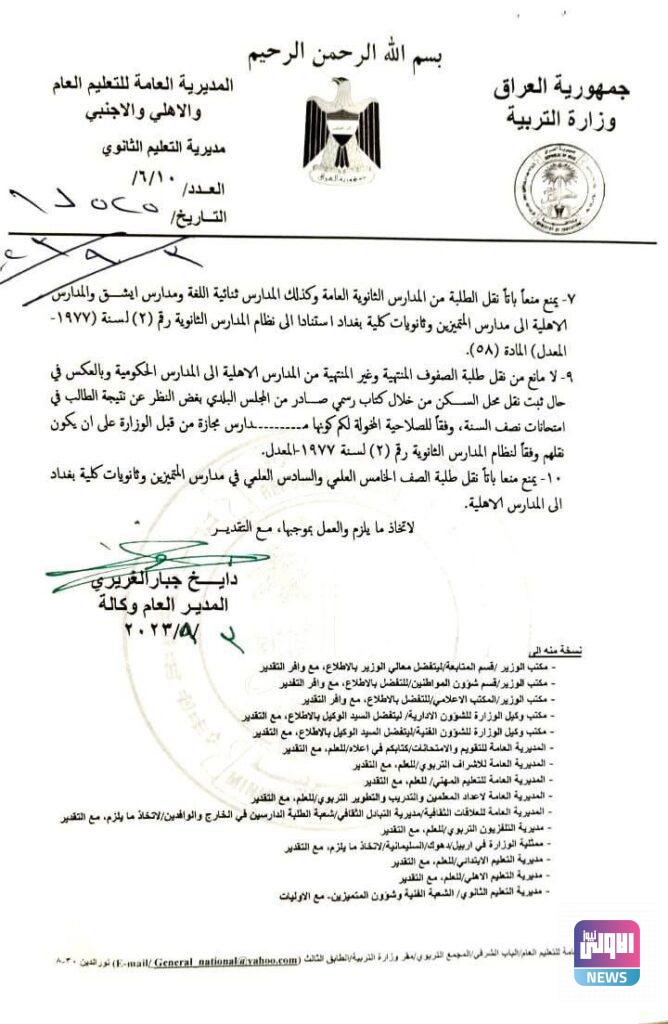 بسم الله الرحمن الرحيم
جمهورية العراق
وزارة التربية
المديرية العامة للتعليم العام
والاهلي والاجنبي
مديرية التعليم الثانوي
العدد/ ٦/١٠/
التاريخ/
٧- يمنع منعاً باتاً نقل الطلبة من المدارس الثانوية العامة وكذلك المدارس ثنائية اللغة ومدارس ايشق والمدارس
الاهلية الى مدارس المتميزين وثانويات كلية بغداد استنادا الى نظام المدارس الثانوية رقم (٢) لسنة (١٩٧٧-
المعدل) المادة (٥٨).
٩- لا مانع من نقل طلبة الصفوف المنتهية وغير المنتهية من المدارس الاهلية الى المدارس الحكومية وبالعكس في
حال ثبت نقل محل السكن من خلال كتاب رسمي صادر من المجلس البلدي بغض النظر عن نتيجة الطالب في
امتحانات نصف السنة، وفقاً للصلاحية المخولة لكم كونها مـــــــــدارس مجازة من قبل الوزارة على ان يكون
نقلهم وفقاً لنظام المدارس الثانوية رقم (٢) لسنة ١٩٧٧-المعدل.
١٠- يمنع منعا باتاً نقل طلبة الصف الخامس العلمي والسادس العلمي في مدارس المتميزين وثانويات كلية بغداد
الى المدارس الاهلية.
لاتخاذ ما يلزم والعمل بموجبها، مـع التقديـر
دايـــخ جبار الغريري
المدير العام وكالة
٢٠٢٣/
نسخة منه الى
- مكتب الوزير /قسم المتابعة/ليتفضل معالي الوزير بالاطلاع، مع وافر التقدير
- مكتب الوزير/قسم شؤون المواطنين/للتفضل بالاطلاع، مع وافر التقدير
- مكتب الوزير/المكتب الاعلامي/للتفضل بالاطلاع، مع وافر التقدير
- مكتب وكيل الوزارة للشؤون الادارية/ ليتفضل السيد الوكيل بالاطلاع، مع التقدير
- مكتب وكيل الوزارة للشؤون الفنية/ليتفضل السيد الوكيل بالاطلاع، مع التقدير
- المديرية العامة للتقويم والامتحانات/كتابكم في اعلاه/للعلم، مع التقدير
- المديرية العامة للاشراف التربوي/للعلم، مع التقدير
- المديرية العامة للتعليم المهني/ للعلم، مع التقدير
- المديرية العامة لاعداد المعلمين والتدريب والتطوير التربوي/للعلم، مع التقدير
- المديرية العامة للعلاقات الثقافية/مديرية التبادل الثقافي/شعبة الطلبة الدارسين في الخارج والوافدين/لاتخاذ ما يلزم، مع التقدير
- مديرية التلفزيون التربوي/للعلم، مع التقدير
- ممثلية الوزارة في اربيل/دهوك/السليمانية/لاتخاذ ما يلزم، مع التقدير
- مديرية التعليم الابتدائي/للعلم، مع التقدير
- مديرية التعليم الاهلي/للعلم، مع التقدير
- مديرية التعليم الثانوي/ الشعبة الفنية وشؤون المتميزين- مع الاوليات
للتعليم العام/الباب الشرقي/المجمع التربوي/مقر وزارة التربية/الطابق الثالث (E-mail/ General_national@yahoo.com) نورالدين ٣٠-٨
الاولى نيوز
NEWS